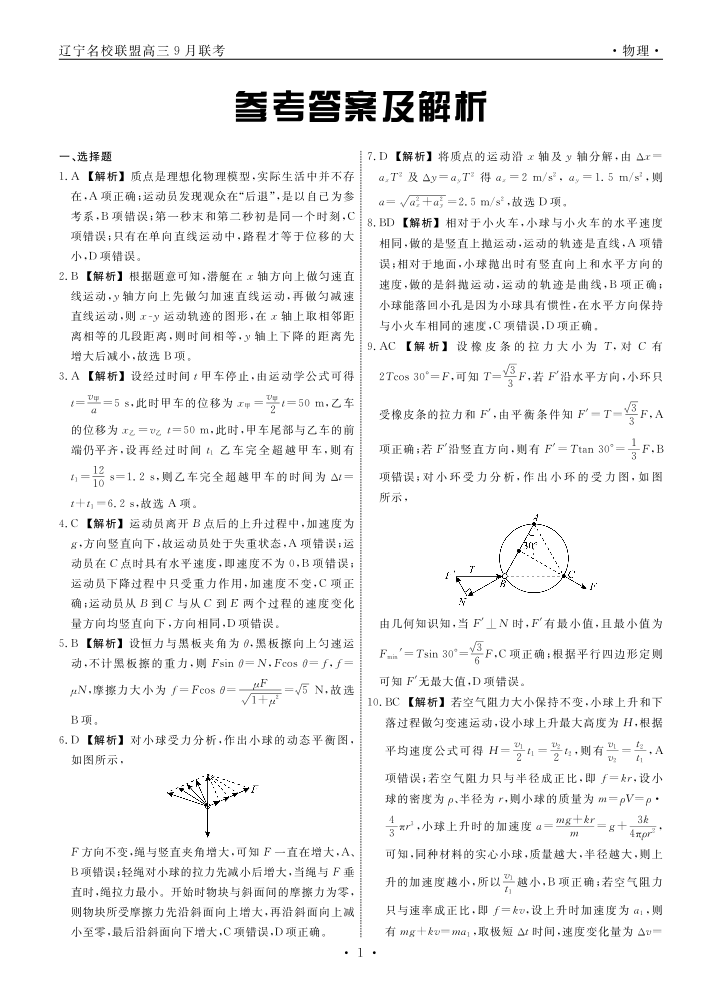 辽宁名校联盟高三9月联考
·物理·
参考答案及解析
一、选择题
1. A 【解析】质点是理想化物理模型,实际生活中并不存
在,A项正确;运动员发现观众在“后退”,是以自己为参
考系,B项错误;第一秒末和第二秒初是同一个时刻,C
项错误;只有在单向直线运动中,路程才等于位移的大
小,D项错误。
2. B 【解析】根据题意可知,潜艇在 x 轴方向上做匀速直
线运动,y轴方向上先做匀加速直线运动,再做匀减速
直线运动,则 x-y 运动轨迹的图形,在 x 轴上取相邻距
离相等的几段距离,则时间相等,y 轴上下降的距离先
增大后减小,故选B项。
3. A 【解析】设经过时间 t 甲车停止,由运动学公式可得
t=v甲/a=5 s,此时甲车的位移为 x甲=v甲/2 t=50 m,乙车
的位移为 x乙=v乙 t=50 m,此时,甲车尾部与乙车的前
端仍平齐,设再经过时间 t₁ 乙车完全超越甲车,则有
t₁=12/10 s=1.2 s,则乙车完全超越甲车的时间为 Δt=
t+t₁=6.2 s,故选 A 项。
4. C 【解析】运动员离开 B 点后的上升过程中,加速度为
g,方向竖直向下,故运动员处于失重状态,A项错误;运
动员在 C 点时具有水平速度,即速度不为 0,B项错误;
运动员下降过程中只受重力作用,加速度不变,C 项正
确;运动员从 B 到 C 与从 C 到 E 两个过程的速度变化
量方向均竖直向下,方向相同,D项错误。
5. B 【解析】设恒力与黑板夹角为 θ,黑板擦向上匀速运
动,不计黑板擦的重力,则 Fsin θ=N,Fcos θ=f,f=
μN,摩擦力大小为 f=Fcos θ=μF/√(1+μ²)=√5 N,故选
B项。
6. D 【解析】对小球受力分析,作出小球的动态平衡图,
如图所示,
F
F 方向不变,绳与竖直夹角增大,可知 F 一直在增大,A、
B项错误;轻绳对小球的拉力先减小后增大,当绳与 F 垂
直时,绳拉力最小。开始时物块与斜面间的摩擦力为零,
则物块所受摩擦力先沿斜面向上增大,再沿斜面向上减
小至零,最后沿斜面向下增大,C项错误,D项正确。
7. D 【解析】将质点的运动沿 x 轴及 y 轴分解,由 Δx=
aₓT² 及 Δy=a_yT² 得 aₓ=2 m/s², a_y=1.5 m/s²,则
a=√(aₓ²+a_y²)=2.5 m/s²,故选 D 项。
8. BD 【解析】相对于小火车,小球与小火车的水平速度
相同,做的是竖直上抛运动,运动的轨迹是直线,A 项错
误;相对于地面,小球抛出时有竖直向上和水平方向的
速度,做的是斜抛运动,运动的轨迹是曲线,B 项正确;
小球能落回小孔是因为小球具有惯性,在水平方向保持
与小火车相同的速度,C项错误,D项正确。
9. AC 【解析】设橡皮条的拉力大小为 T,对 C 有
2Tcos 30°=F,可知 T=√3/3 F,若 F′沿水平方向,小环只
受橡皮条的拉力和 F′,由平衡条件知 F′=T=√3/3 F,A
项正确;若 F′沿竖直方向,则有 F′=Ttan 30°=1/3 F,B
项错误;对小环受力分析,作出小环的受力图,如图
所示,
A
30°
T
B
C
F
N
由几何知识知,当 F′⊥N 时,F′有最小值,且最小值为
Fmin′=Tsin 30°=√3/6 F,C项正确;根据平行四边形定则
可知 F′无最大值,D项错误。
10. BC 【解析】若空气阻力大小保持不变,小球上升和下
落过程做匀变速运动,设小球上升最大高度为 H,根据
平均速度公式可得 H=v₁/2 t₁=v₂/2 t₂,则有 v₁/v₂=t₂/t₁,A
项错误;若空气阻力只与半径成正比,即 f=kr,设小
球的密度为 ρ、半径为 r,则小球的质量为 m=ρV=ρ·
4/3 πr³,小球上升时的加速度 a=(mg+kr)/m=g+3k/4πρr²,
可知,同种材料的实心小球,质量越大,半径越大,则上
升的加速度越小,所以 v₁/t₁ 越小,B项正确;若空气阻力
只与速率成正比,即 f=kv,设上升时加速度为 a₁,则
有 mg+kv=ma₁,取极短 Δt 时间,速度变化量为 Δv=
· 1 ·